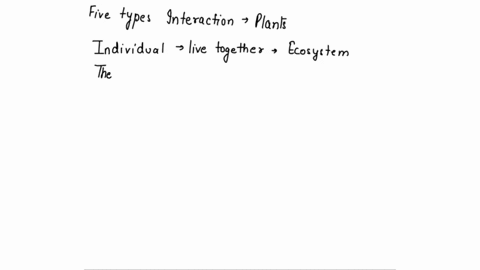 Five types Interaction → Plants
Individual → live together → Ecosystem
The